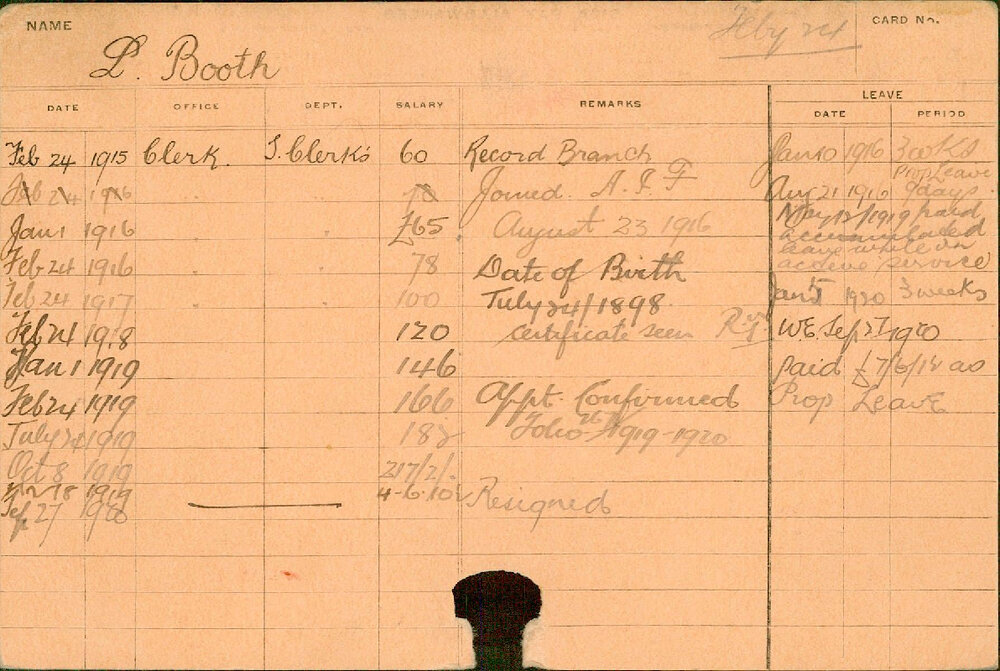 NAME
L. Booth
Feby 24
CARD No.
DATE OFFICE DEPT. SALARY REMARKS LEAVE
DATE PERIOD
Feb 24 1915 Clerk. T. Clerks 60 Record Branch Jan 10 1916 3 weeks
Prop Leave
Feb 24 1916 78 Joined A. I. F Aug 21 1916 9 days.
Jan 1 1916 £65. August 23 1916 May 12/1919 paid
accumulated
leave while on
Feb 24 1916 78 Date of Birth active service
Feb 24 1917 100 July 24/1898 Jan 5 1920 3 weeks
Feb 24 1918 120 certificate seen W.E. Sep 27 1920
Jan 1 1919 146 paid £7/6/12 as
Feb 24 1919 166 Appt. Confirmed Prop Leave
July 24 1919 182 Folio 1919-1920
Oct 8 1919 217/2/.
1919 4-6-10
Sep 27 Resigned